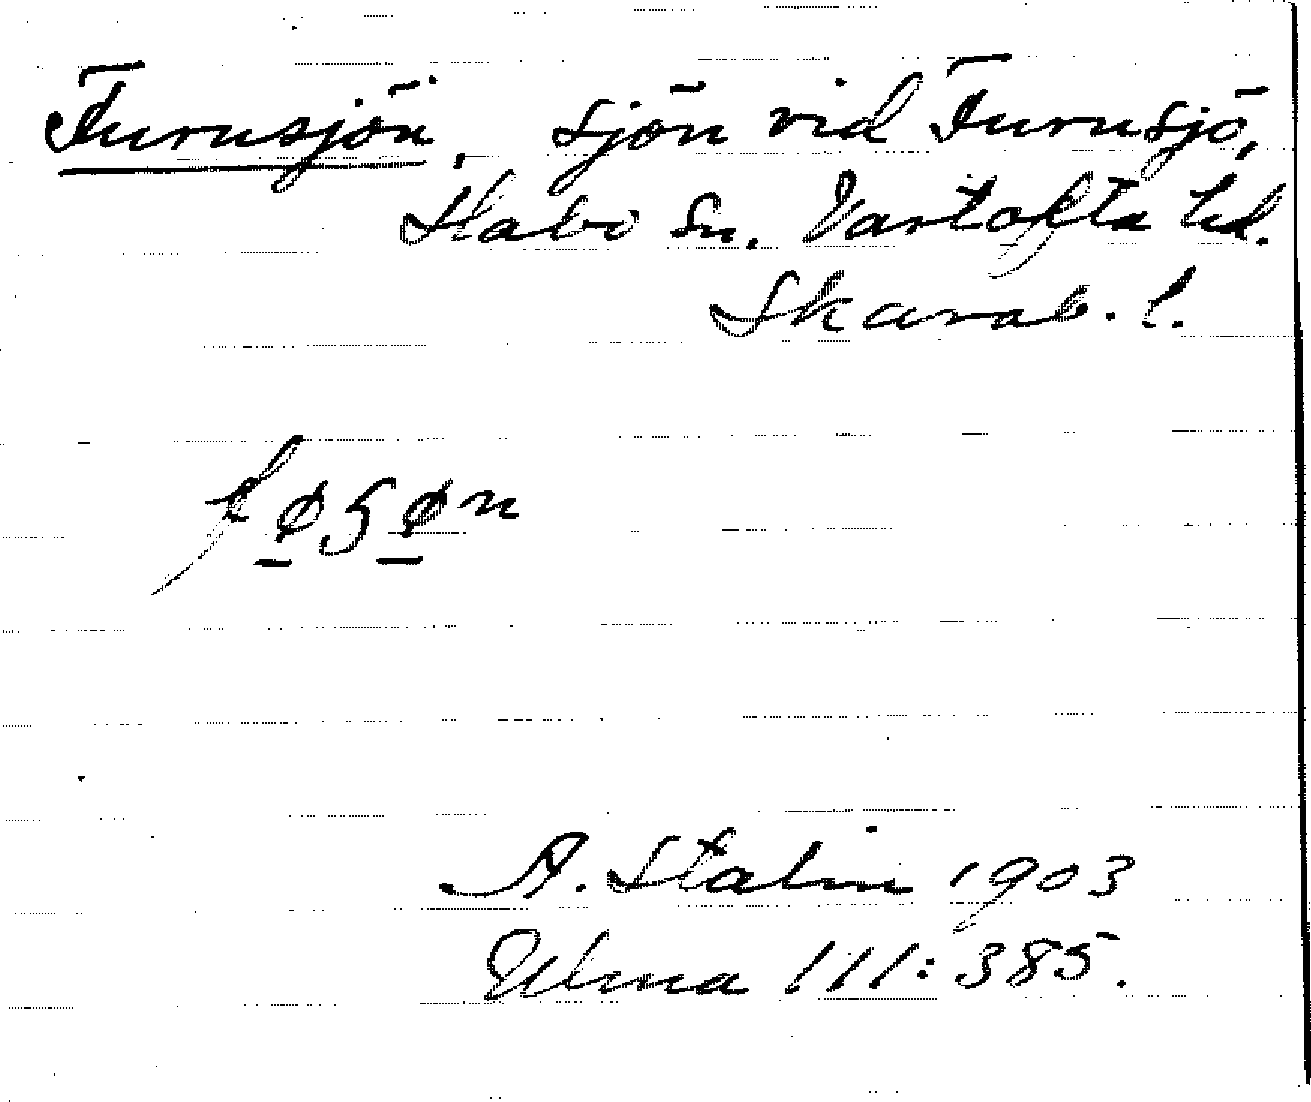 Furusjön, sjön vid Furusjö,
Habo sn. Vartofta hd.
Skarab. l.
A. Stalin 1903
Ulma 111: 385.